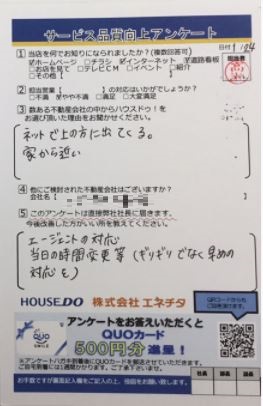 サービス品質向上アンケート
日付 1/24
① 当店を何でお知りになられましたか?(複数回答可)
□ホームページ □チラシ ☑インターネット □道路看板
□お店を見て □テレビCM □イベント □紹介
□その他(
② 担当営業【 】の対応はいかがでしょうか?
□不満 □やや不満 □満足 □大変満足
③ 数ある不動産会社の中からハウスドゥ!を
お選び頂いた理由をお聞かせください。
ネットで上の方に出てくる。
家から近い
④ 他にご検討された不動産会社はございますか?
会社名(
⑤ このアンケートは直接弊社社長に届きます。
今後改善した方がいい所を教えてください。
エージェントの対応
当日の時間変更等(ギリギリでなく早めの
対応を)
HOUSEDO 株式会社エネチタ
アンケートをお答えいただくと
QUOカード
500円分進呈!
QUO
SMILE
QRコードからも
※アンケートハガキ到着後にQUOカードを郵送させていただきます。
ご自宅到着には1週間かかります。ご了承下さいませ。
お手数ですが裏面記入欄をご記入の上、投函をお願い致します。
社長 部長 課長